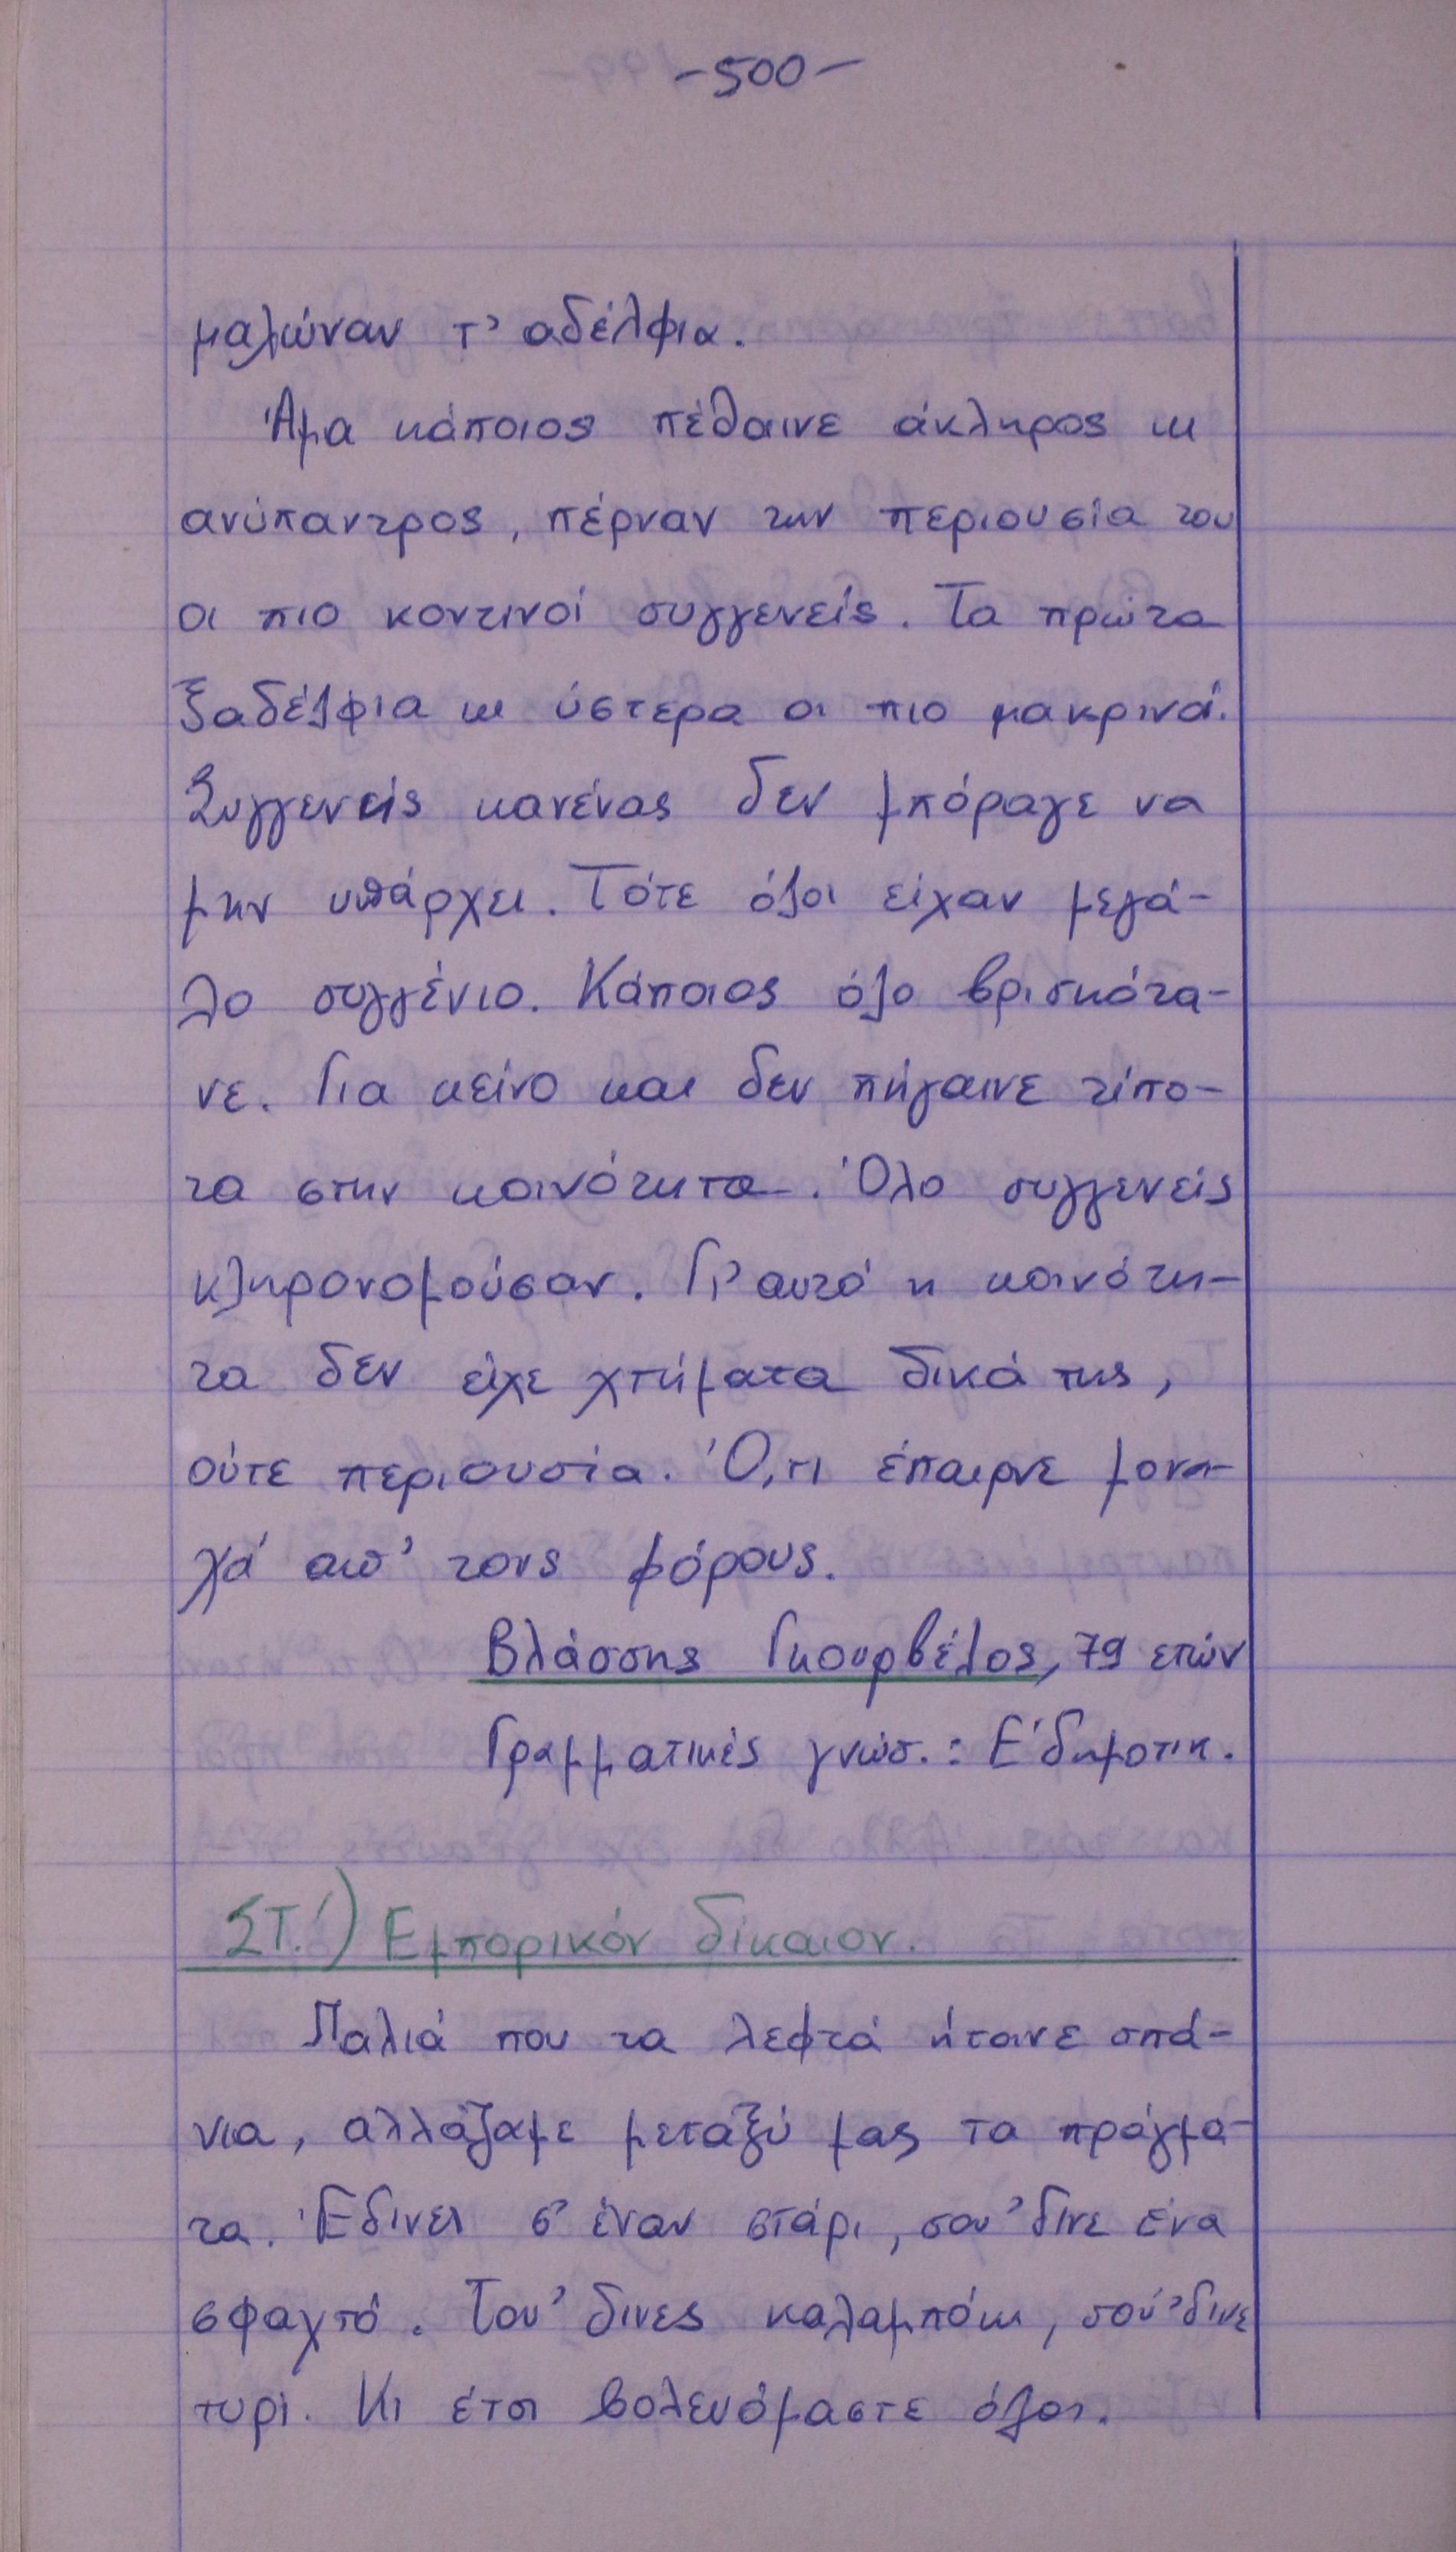 -500-
μαλώναν τ' αδέλφια.
Άμα κάποιος πέθαινε άκληρος κι
ανύπαντρος, πέρναν την περιουσία του
οι πιο κοντινοί συγγενείς. Τα πρώτα
ξαδέλφια κι ύστερα οι πιο μακρινά.
Συγγενείς κανένας δεν μπόραγε να
μην υπάρχει. Τότε όλοι είχαν μεγά-
λο συγγένιο. Κάποιος όλο βρισκότα-
νε. Για κείνο και δεν πήγαινε τίπο-
τα στην κοινότητα. Όλο συγγενείς
κληρονομούσαν. Γι' αυτό η κοινότη-
τα δεν είχε χτήματα δικά της,
ούτε περιουσία. Ό,τι έπαιρνε μονα-
χά απ' τους φόρους.
Βλάσσης Γκουρβέλος, 79 ετών
Γραμματικές γνώσ.: Ε' δημοτικ.
ΣΤ.') Εμπορικόν δίκαιον.
Παλιά που τα λεφτά ήτανε σπά-
νια, αλλάζαμε μεταξύ μας τα πράγμα-
τα. Έδινες σ' έναν στάρι, σου 'δινε ένα
σφαχτό. Του' δινες καλαμπόκι, σού 'δινε
τυρί. Κι έτσι βολευόμαστε όλοι.